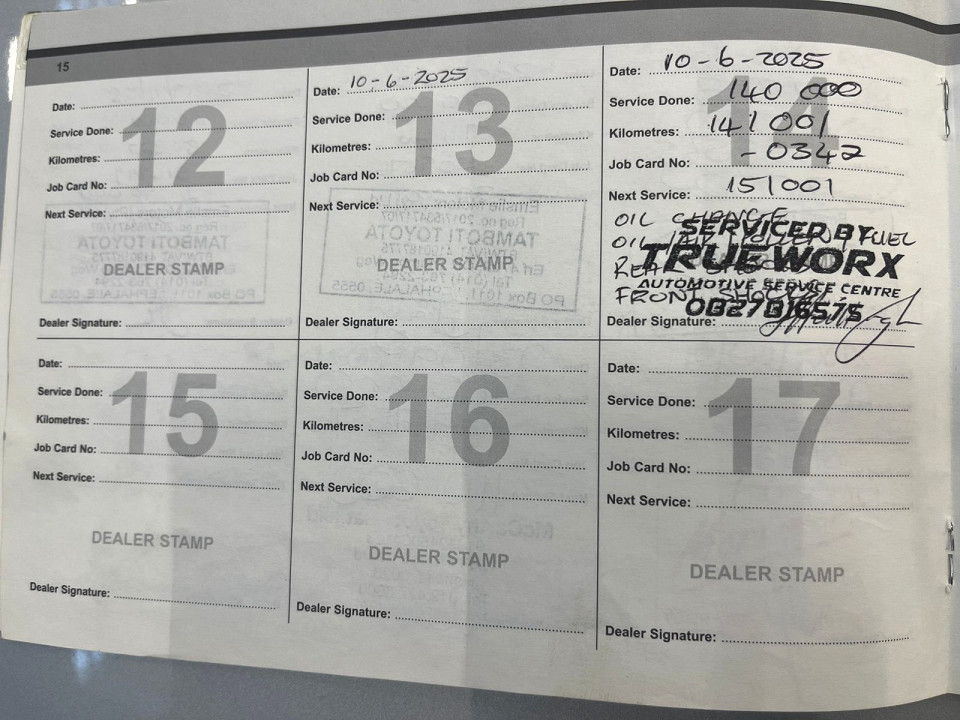 15
Date:
Service Done:
Kilometres:
Job Card No:
Next Service:
12
DEALER STAMP
Dealer Signature:
Date: 10-6-2025
Service Done:
Kilometres:
Job Card No:
Next Service:
13
DEALER STAMP
Dealer Signature:
Date: 10-6-2025
Service Done: 140 000
Kilometres: 141 001
Job Card No: -0342
Next Service: 151001
14
OIL CHANGE
OIL FUEL
REAR
FRONT SHOCKS
SERVICED BY
TRUEWORX
AUTOMOTIVE SERVICE CENTRE
0827816575
Dealer Signature:
Date:
Service Done:
Kilometres:
Job Card No:
Next Service:
15
DEALER STAMP
Dealer Signature:
Date:
Service Done:
Kilometres:
Job Card No:
Next Service:
16
DEALER STAMP
Dealer Signature:
Date:
Service Done:
Kilometres:
Job Card No:
Next Service:
17
DEALER STAMP
Dealer Signature: